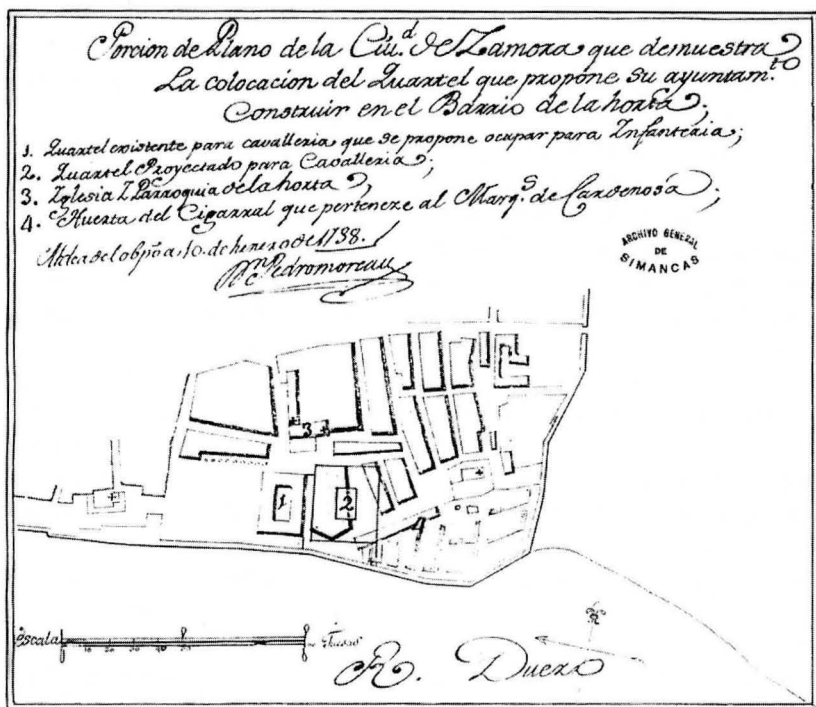 Porcion de Plano de la Ciu.d de Zamora que demuestra
La colocacion del Quartel que propone su ayuntam.to
Construir en el Barrio de la horta;
1. Quartel existente para cavalleria que se propone ocupar para Infanteria;
2. Quartel Proyectado para Cavalleria;
3. Iglesia I Parroquia de la horta;
4. Huerta del Cigarral que perteneze al Marq.s de Cardenosa;
10. de henero de 1738.
Pedro moreau
ARCHIVO GENERAL
DE
SIMANCAS
3
1
2
4
escala
10 20 30 40 50
R. Duero